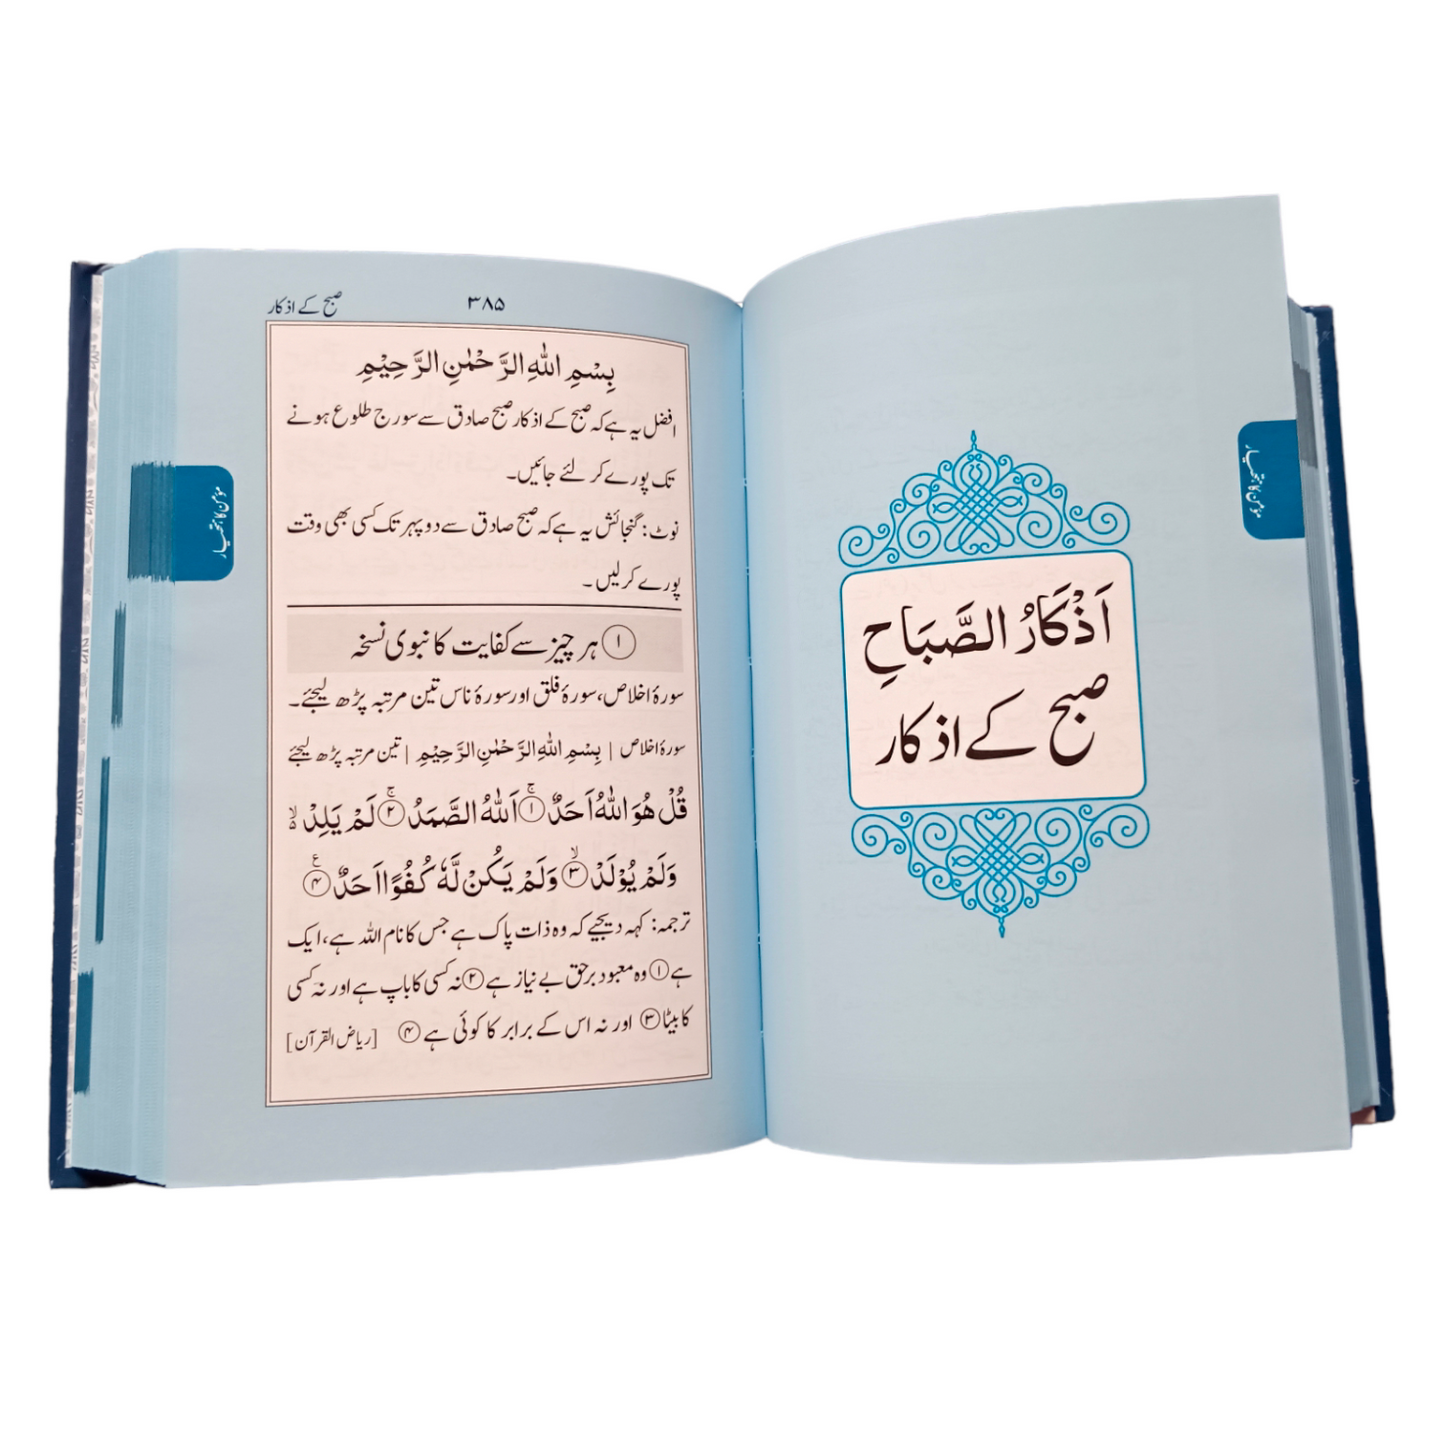 مؤمن کا ہتھیار
اَذْكَارُ الصَّبَاحِ
صبح کے اذکار
صبح کے اذکار
۳۸۵
بِسْمِ اللهِ الرَّحْمٰنِ الرَّحِيْمِ
افضل یہ ہے کہ صبح کے اذکار صبح صادق سے سورج طلوع ہونے
تک پورے کر لئے جائیں۔
نوٹ: گنجائش یہ ہے کہ صبح صادق سے دوپہر تک کسی بھی وقت
پورے کرلیں۔
① ہر چیز سے کفایت کا نبوی نسخہ
سورۂ اخلاص، سورۂ فلق اور سورۂ ناس تین مرتبہ پڑھ لیجئے۔
سورۂ اخلاص | بِسْمِ اللهِ الرَّحْمٰنِ الرَّحِيْمِ | تین مرتبہ پڑھ لیجئے
قُلْ هُوَ اللهُ اَحَدٌ ۚ﴿۱﴾ اَللهُ الصَّمَدُ ۚ﴿۲﴾ لَمْ يَلِدْ ۙ۬
وَلَمْ يُوْلَدْ ۙ﴿۳﴾ وَلَمْ يَكُنْ لَّهٗ كُفُوًا اَحَدٌ ﴿۴﴾ۧ
ترجمہ: کہہ دیجیے کہ وہ ذات پاک ہے جس کا نام اللہ ہے، ایک
ہے ① وہ معبود برحق بے نیاز ہے ② نہ کسی کا باپ ہے اور نہ کسی
کا بیٹا ③ اور نہ اس کے برابر کا کوئی ہے ④ [ریاض القرآن]
مؤمن کا ہتھیار